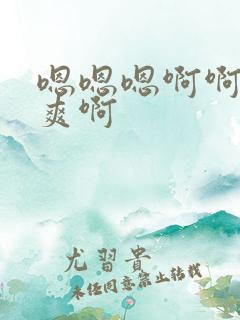 嗯嗯嗯啊啊
爽啊
尤習貴
未经同意禁止转载